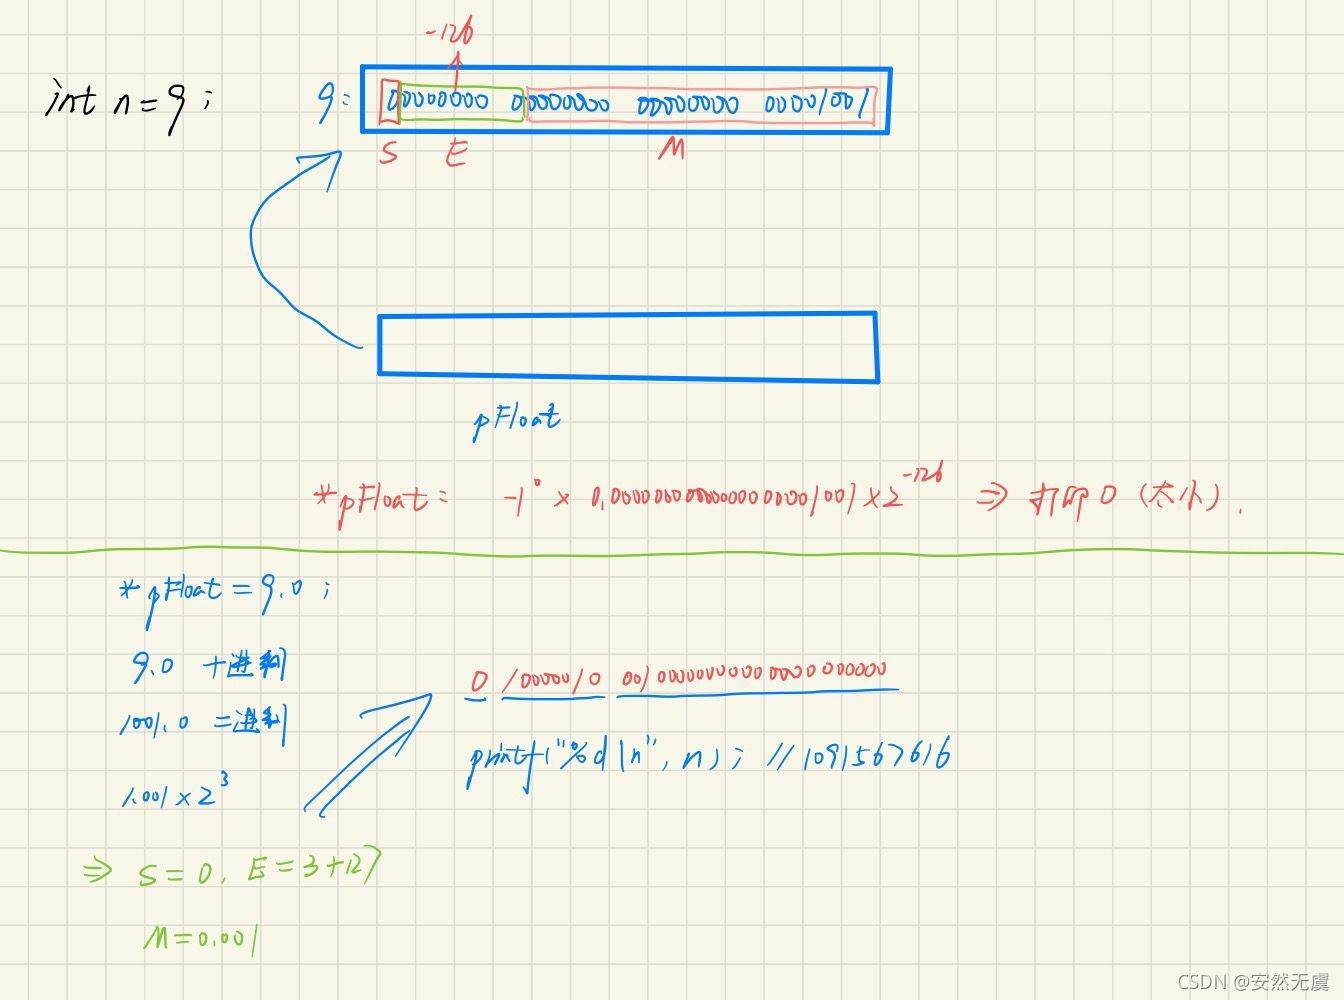 -126
int n = 9 ;
9: 00000000 00000000 00000000 00001001
S E M
pFloat
*pFloat : -1^0 × 0.00000000000000000001001 × 2^-126 ⇒ 打印0 (太小) .
*pFloat = 9.0 ;
9.0 十进制
1001.0 二进制
1.001 × 2^3
⇒ S = 0. E = 3+127
M = 0.001
0 10000010 00100000000000000000000
printf("%d\n", n) ; //1091567616
CSDN @安然无虞